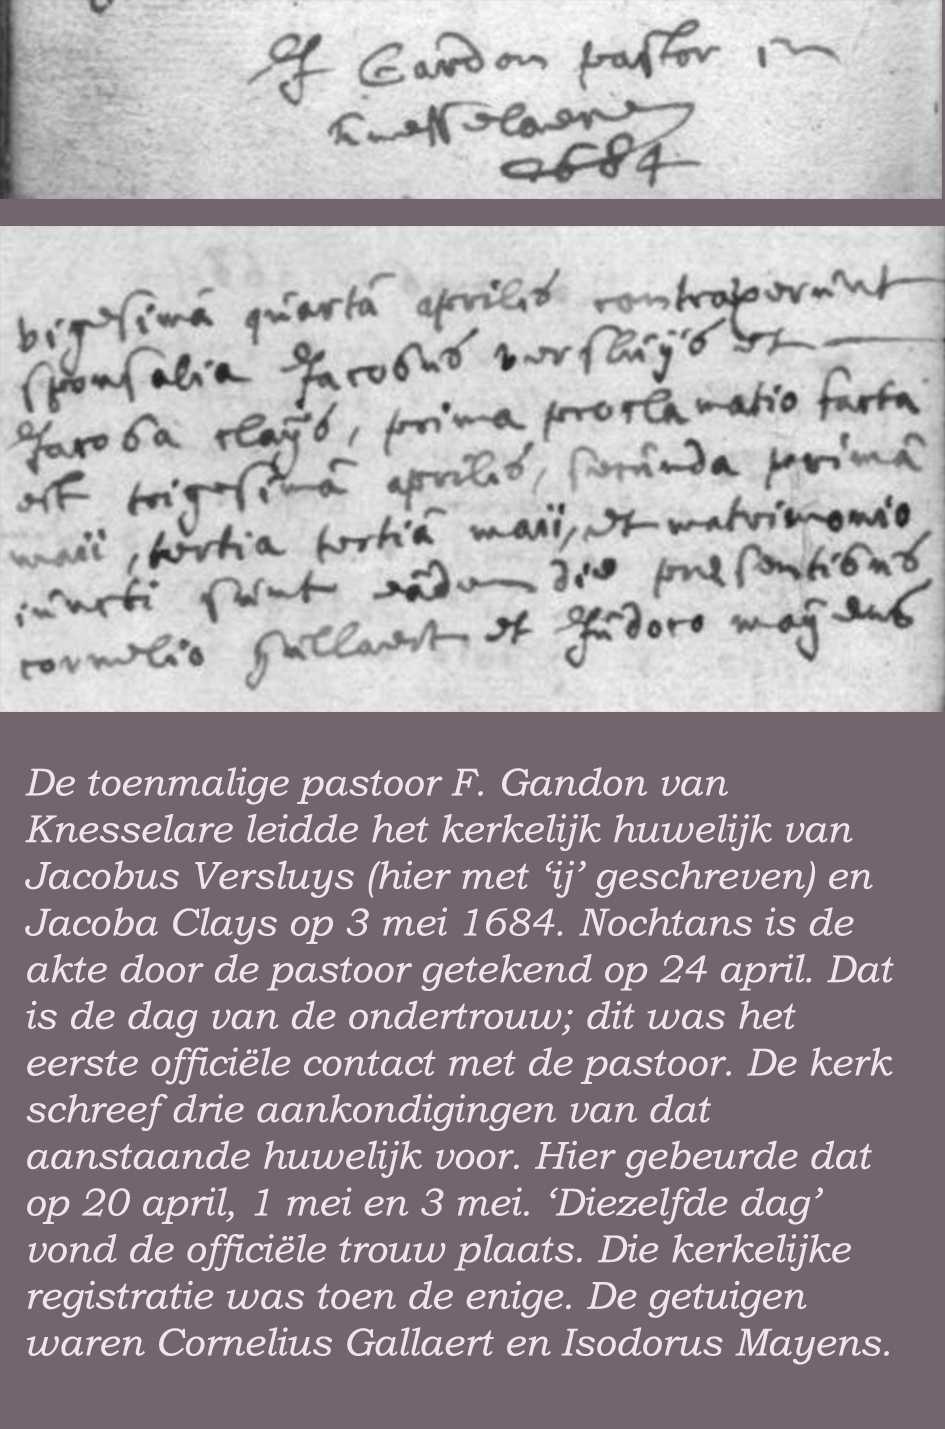 F Gandon pastor in
knesselaere
1684
vigesimâ quartâ aprilis contraxerunt
sponsalia Jacobus versluijs et
Jacoba claijs, prima proclamatio facta
est trigesimâ aprilis, secunda primâ
maii, tertia tertiâ maii, et matrimonio
iuncti sunt eâdem die presentibus
cornelio et maijens
De toenmalige pastoor F. Gandon van
Knesselare leidde het kerkelijk huwelijk van
Jacobus Versluys (hier met ‘ij’ geschreven) en
Jacoba Clays op 3 mei 1684. Nochtans is de
akte door de pastoor getekend op 24 april. Dat
is de dag van de ondertrouw; dit was het
eerste officiële contact met de pastoor. De kerk
schreef drie aankondigingen van dat
aanstaande huwelijk voor. Hier gebeurde dat
op 20 april, 1 mei en 3 mei. ‘Diezelfde dag’
vond de officiële trouw plaats. Die kerkelijke
registratie was toen de enige. De getuigen
waren Cornelius Gallaert en Isodorus Mayens.